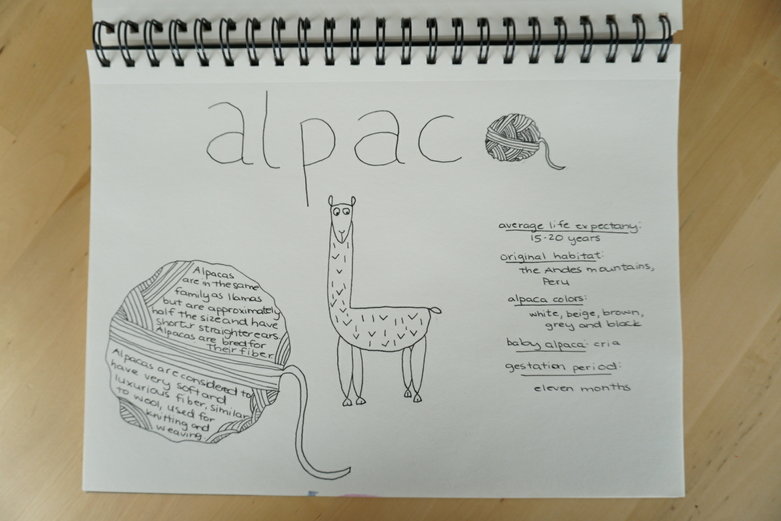 alpaca
Alpacas
are in the same
family as llamas
but are approximately
half the size and have
shorter straighter ears.
Alpacas are bred for
Their fiber.
Alpacas are considered to
have very soft and
luxurious fiber, similar
to wool, used for
knitting and
weaving.
average life expectany:
15-20 years
original habitat:
the Andes mountains,
Peru
alpaca colors:
white, beige, brown,
grey and black
baby alpaca: cria
gestation period:
eleven months